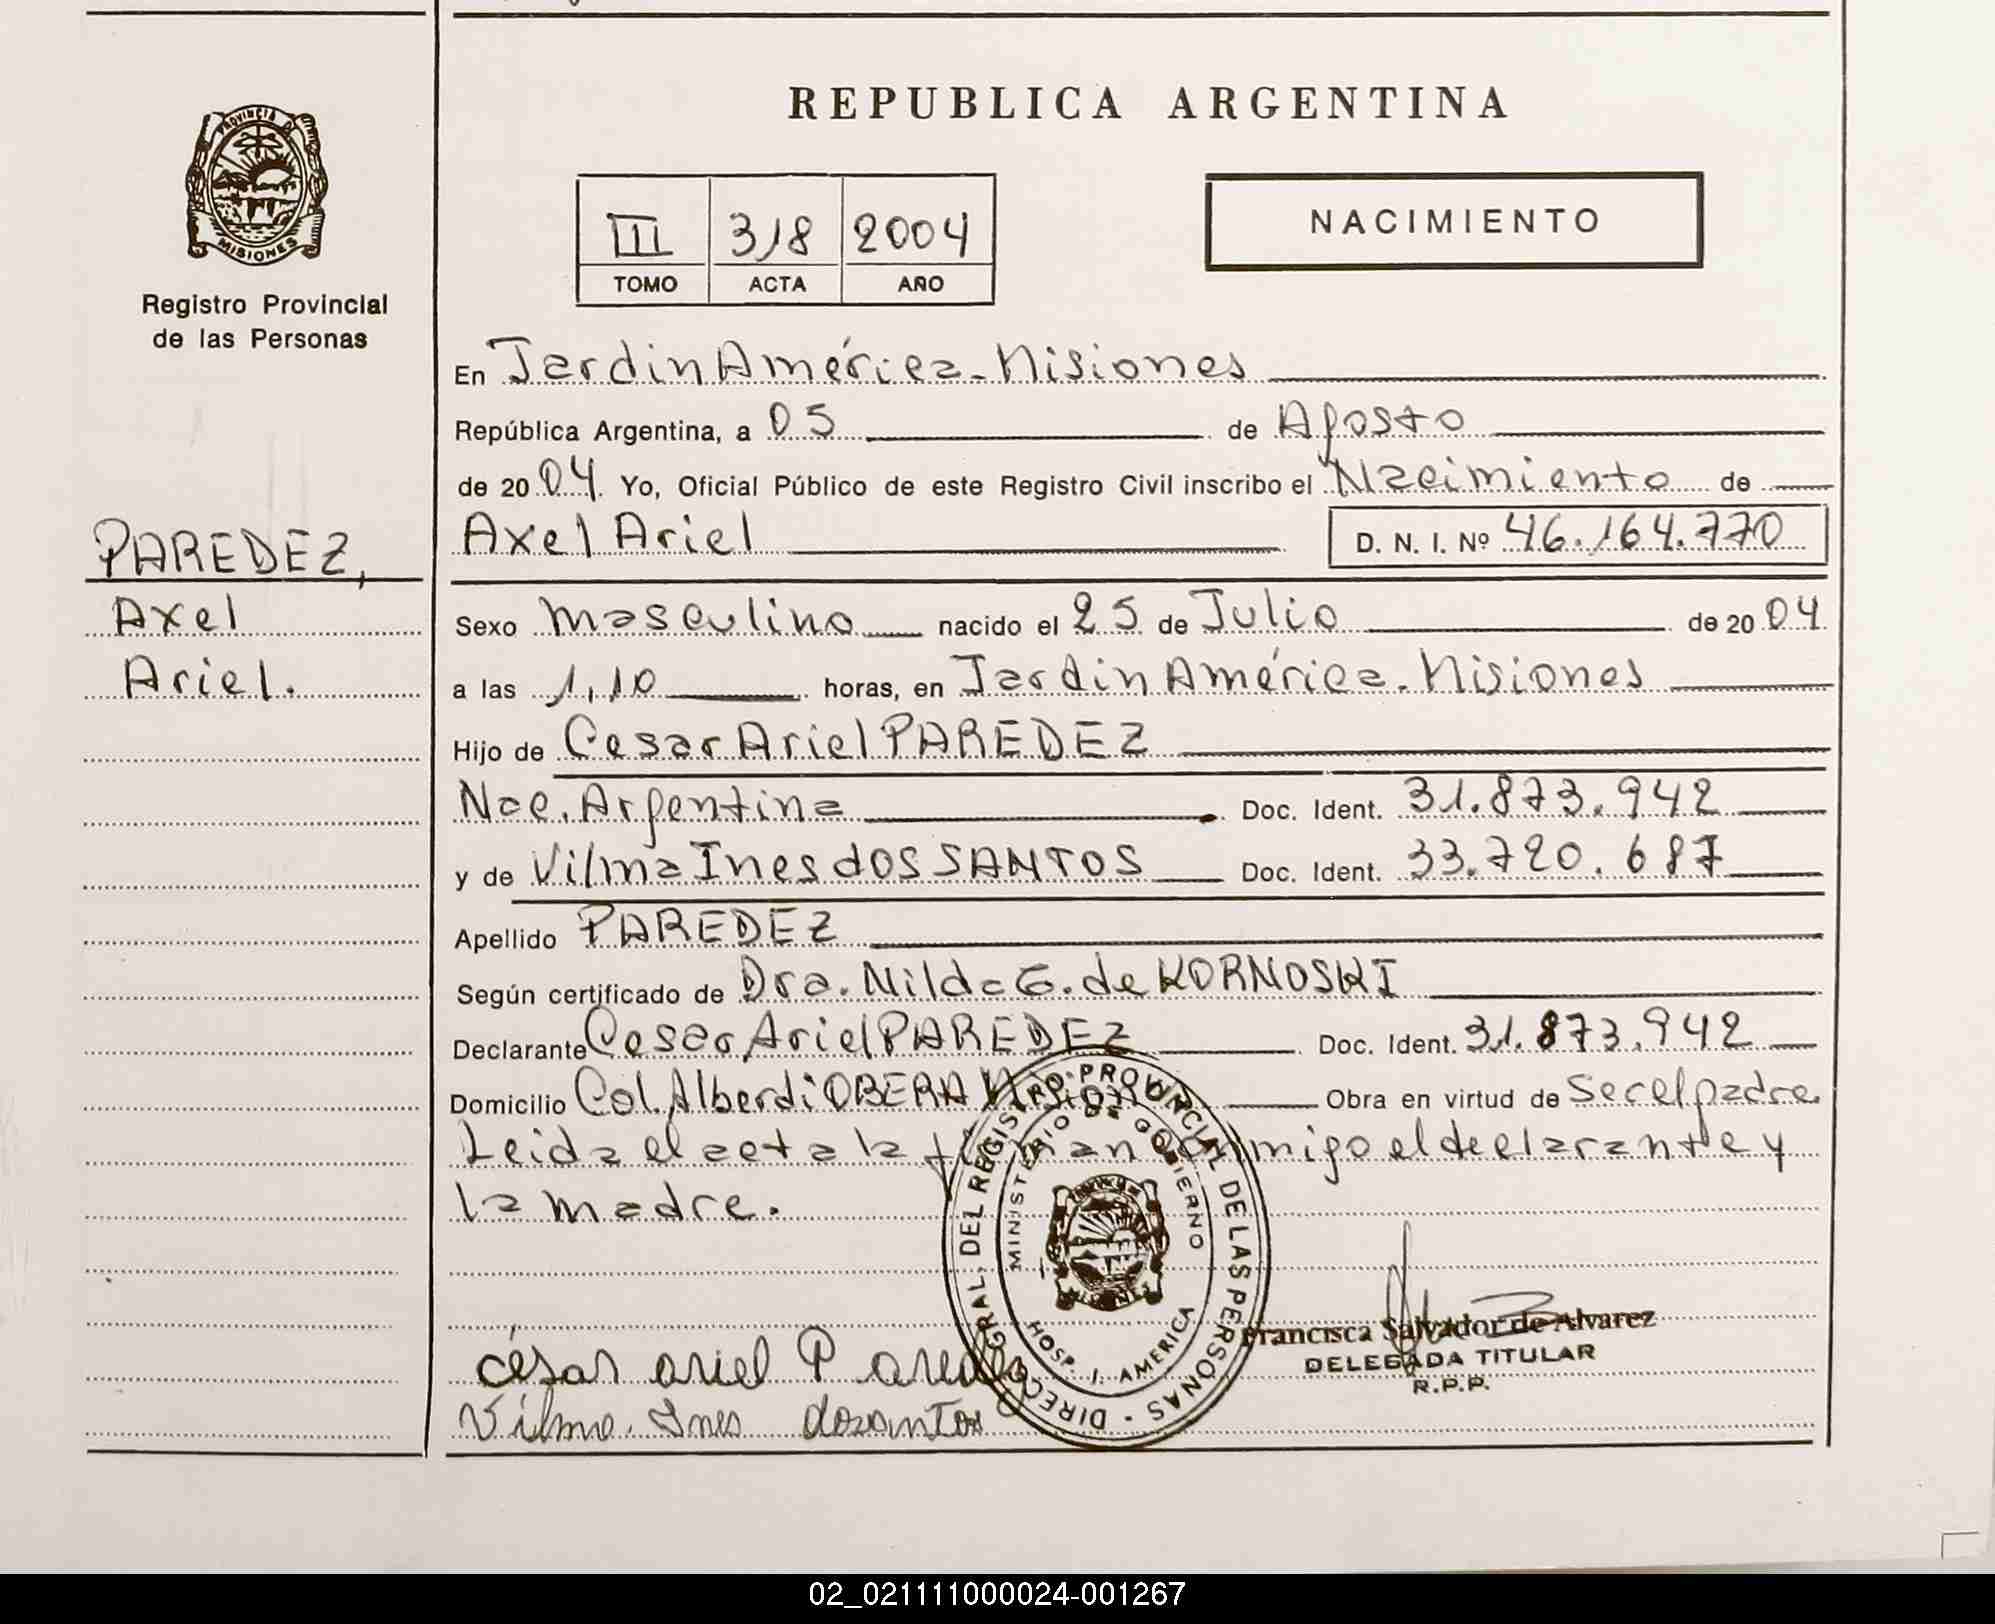 PROVINCIA DE
MISIONES
Registro Provincial
de las Personas
PAREDEZ,
Axel
Ariel.
REPUBLICA ARGENTINA
III 318 2004
TOMO ACTA AÑO
NACIMIENTO
En Jardin América - Misiones
República Argentina, a 05 de Agosto
de 2004. Yo, Oficial Público de este Registro Civil inscribo el Nacimiento de
Axel Ariel D. N. I. Nº 46.164.770
Sexo masculino nacido el 25 de Julio de 2004
a las 1,10 horas, en Jardin América. Misiones
Hijo de Cesar Ariel PAREDEZ
Nac. Argentina Doc. Ident. 31.873.942
y de Vilma Ines dos SANTOS Doc. Ident. 33.720.687
Apellido PAREDEZ
Según certificado de Dra. Nilda G. de KORNOSKI
Declarante Cesar Ariel PAREDEZ Doc. Ident. 31.873.942
Domicilio Col. Alberdi OBERA Misiones Obra en virtud de ser el padre.
Leida el acta la firman conmigo el declarante y
la madre.
DIRECC. GRAL. DEL REGISTRO PROVINCIAL DE LAS PERSONAS
MINISTERIO DE GOBIERNO
HOSP. J. AMERICA
Francisca Salvador de Alvarez
DELEGADA TITULAR
R.P.P.
césar ariel Paredes
Vilma Ines dosantos
02_021111000024-001267